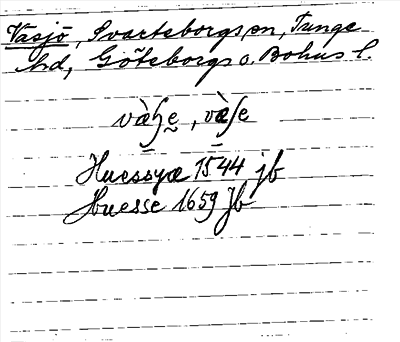 Väsjö, Svarteborgs sn, Tunge
hd, Göteborgs o. Bohus l.
Huessyæ 1544 jb
Huesse 1659 Jb